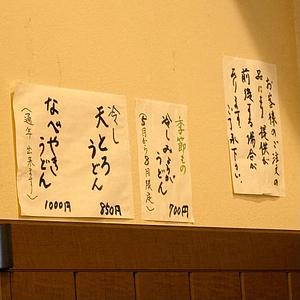 お客様のご注文の
品により提供が
前後する場合が
有ります。
ご了承下さい。
季節もの
冷しみょうがうどん
(5月から8月限定)
700円
冷し
天とろ
うどん
850円
なべやき
うどん
(通年出来ます)
1000円